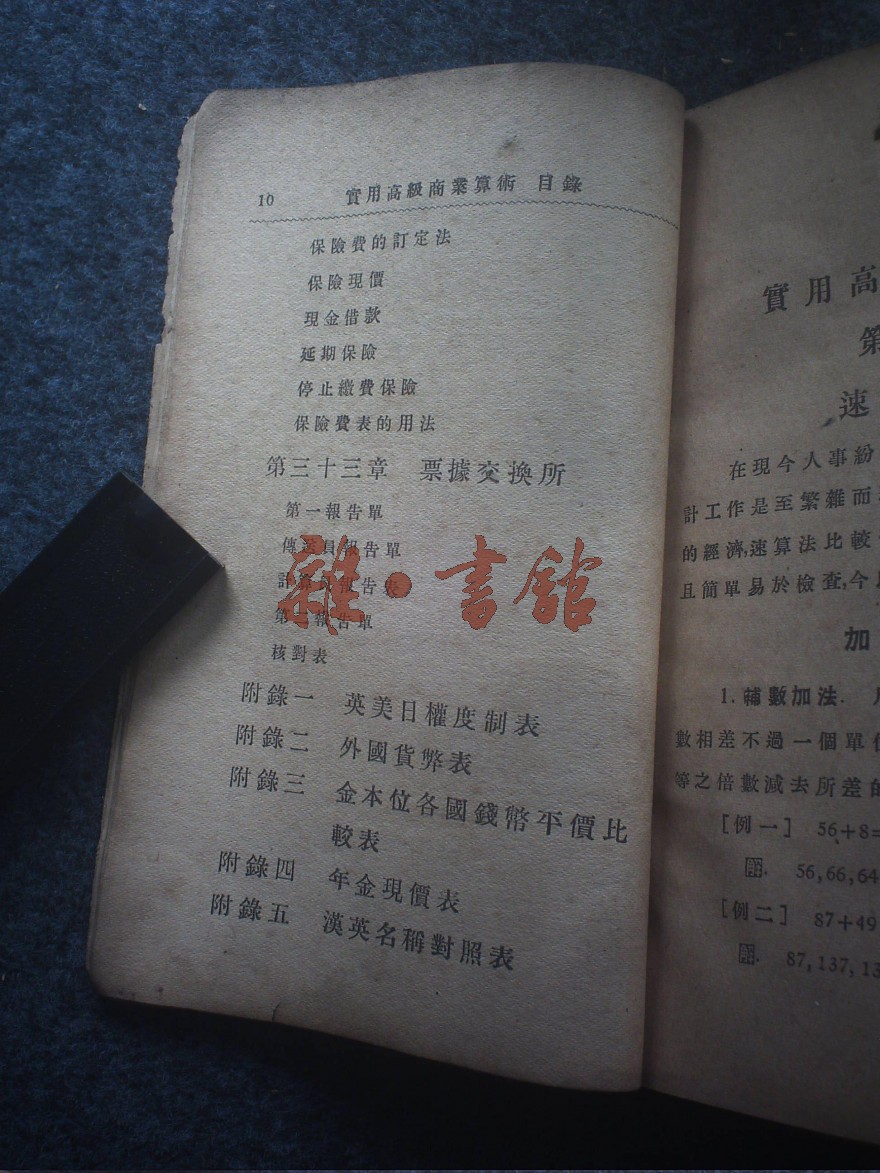 10 實用高級商業算術 目錄
保險費的訂定法
保險現價
現金借款
延期保險
停止繳費保險
保險費表的用法
第三十三章 票據交換所
第一報告單
傳送員報告單
計算員報告表
第二報告單
核對表
附錄一 英美日權度制表
附錄二 外國貨弊表
附錄三 金本位各國錢幣平價比
較表
附錄四 年金現價表
附錄五 漢英名稱對照表
雜·書館
實用高
第
速
在現今人事紛
計工作是至繁雜而
的經濟,速算法比較
且簡單易於檢查,今
加
1. 補數加法.
數相差不過一個單位
等之倍數減去所差的
[例一] 56+8=
解. 56,66,64
[例二] 87+49
解. 87,137,13